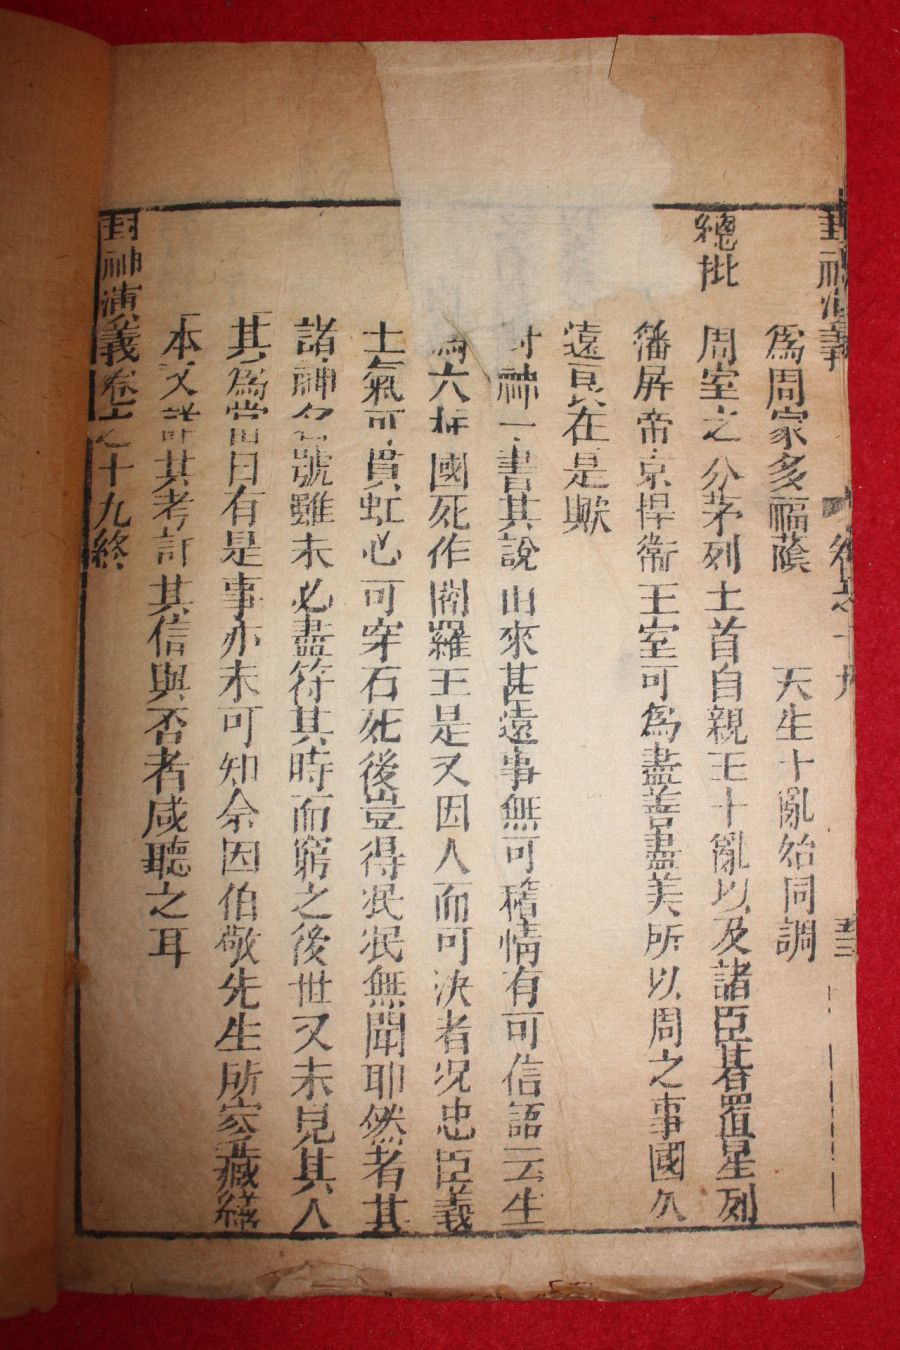 封神演義 卷之十九 
爲周家多福蔭　天生十亂始同調
總批　周室之分茅列土首自親王十亂以及諸臣碁置星列
藩屏帝京捍衛王室可爲盡善盡美所以周之事國久
遠良在是歟
封神一書其說由來甚遠事無可稽情有可信語云生
爲六柱國死作閻羅王是又因人而可決者况忠臣義
士氣可貫虹心可穿石死後豈得泯泯無聞耶然者其
諸神名號雖未必盡符其時而窮之後世又未見其人
其爲當日有是事亦未可知余因伯敬先生所家藏繕
本又詳其考訂其信與否者咸聽之耳
封神演義卷之十九終